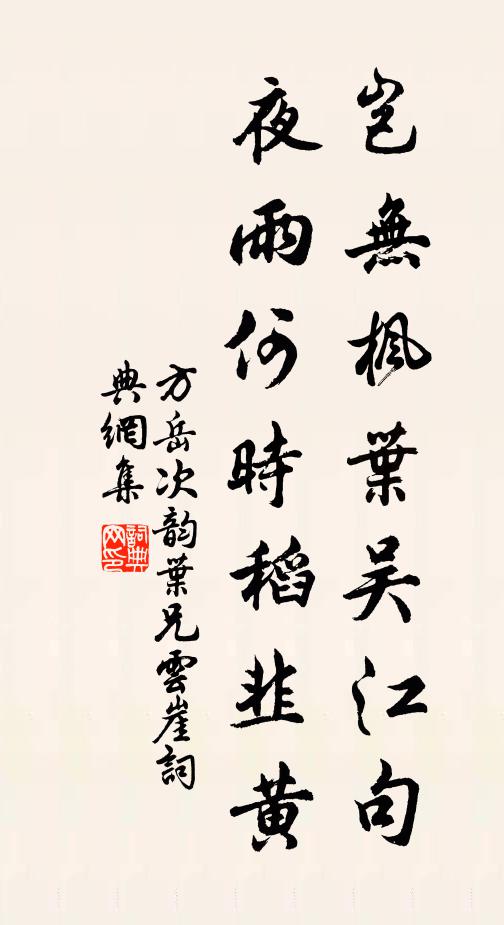 豈無楓葉吴江句
夜雨何時稻韭黃
方岳次韵葉兄雲崖詞
典網集
詞典
网印